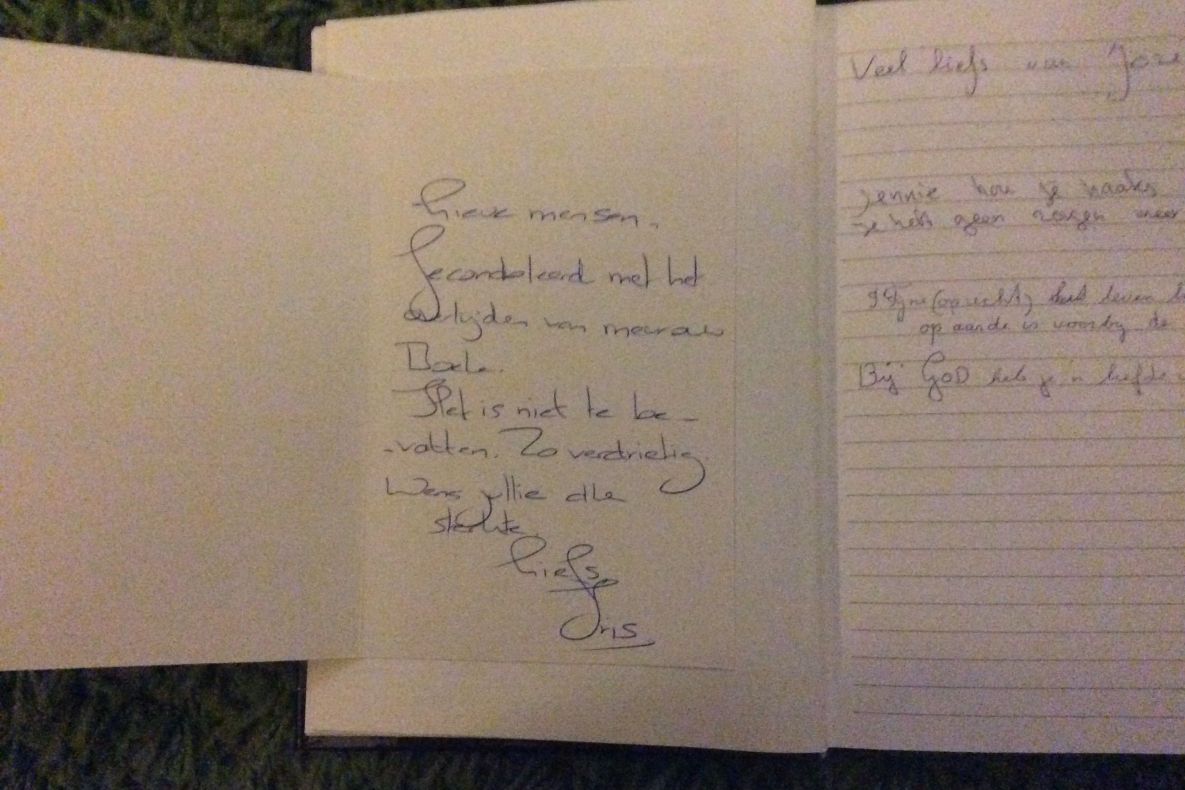 Lieve mensen.
Gecondoleerd met het
overlijden van mevrouw
Het is niet te be-
-vatten. Zo verdrietig.
Wens jullie alle
sterkte
Liefs,
Iris
Veel liefs van
Jennie hou je haaks
je hebt geen zorgen meer
leven
op aarde is voorby de
Bij GOD heb je 'n liefde